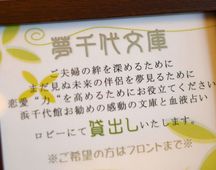 夢千代文庫
ご夫婦の絆を深めるために
まだ見ぬ未来の伴侶を夢見るために
恋愛“力”を高めるためにお役立てください
浜千代館お勧めの感動の文庫と血液占い
ロビーにて貸出しいたします。
※ご希望の方はフロントまで※